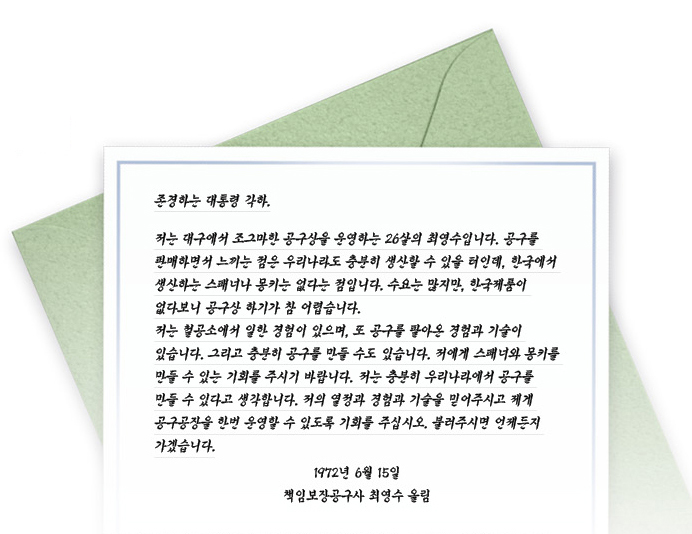 존경하는 대통령 각하.
저는 대구에서 조그마한 공구상을 운영하는 26살의 최영수입니다. 공구를
판매하면서 느끼는 점은 우리나라도 충분히 생산할 수 있을 터인데, 한국에서
생산하는 스패너나 몽키는 없다는 점입니다. 수요는 많지만, 한국제품이
없다보니 공구상 하기가 참 어렵습니다.
저는 철공소에서 일한 경험이 있으며, 또 공구를 팔아온 경험과 기술이
있습니다. 그리고 충분히 공구를 만들 수도 있습니다. 저에게 스패너와 몽키를
만들 수 있는 기회를 주시기 바랍니다. 저는 충분히 우리나라에서 공구를
만들 수 있다고 생각합니다. 저의 열정과 경험과 기술을 믿어주시고 제게
공구공장을 한번 운영할 수 있도록 기회를 주십시오. 불러주시면 언제든지
가겠습니다.
1972년 6월 15일
책임보장공구사 최영수 올림